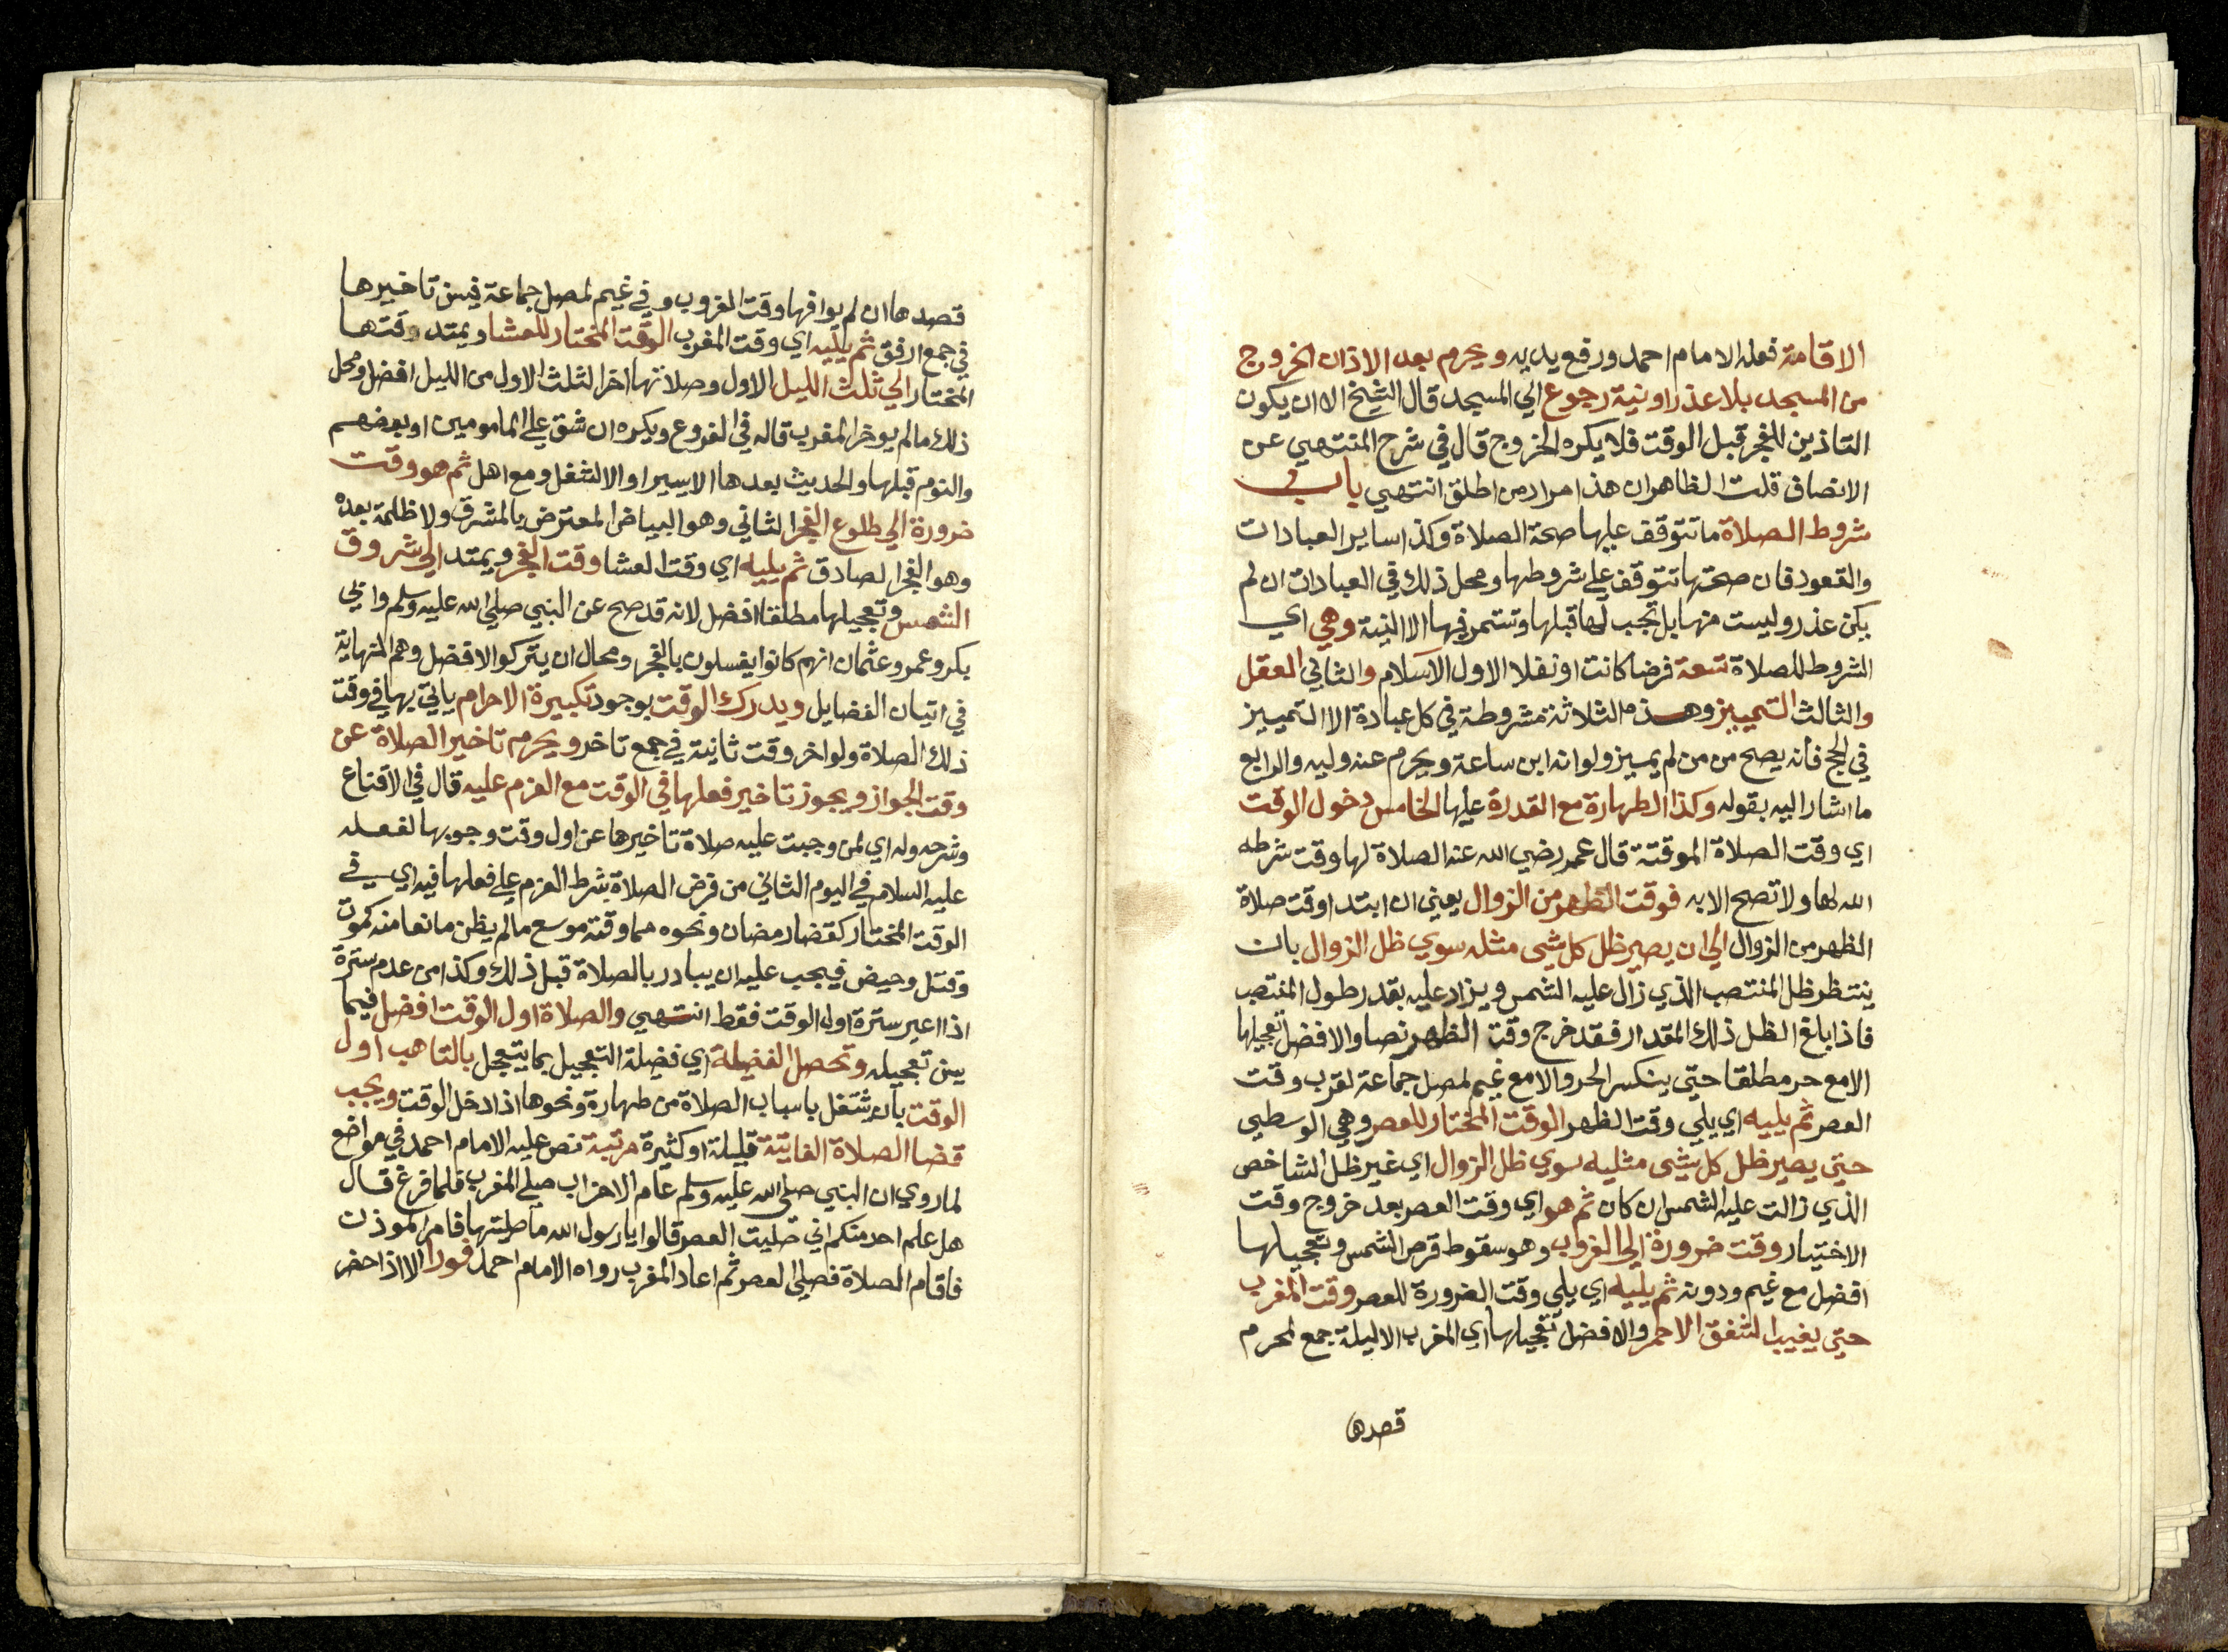 الاقامة فعله الامام احمد ورفع يديه ويحرم بعد الاذان الخروج
من المسجد بلا عذر او نية رجوع الي المسجد قال الشيخ الا ان يكون
التاذين للفجر قبل الوقت فلا يكره الخروج قال في شرح المنتهي عن
الانصاف قلت الظاهر ان هذا مراد من اطلق انتهي باب في
شروط الصلاة ما تتوقف عليها صحة الصلاة وكذا ساير العبادات
والقعود فان صحتها تتوقف علي شروطها ومحل ذلك في العبادات ان لم
يكن عذر وليست منها بل تجب لها قبلها وتستمر فيها الا النية وهي اي
الشروط للصلاة تسعة فرضا كانت او نفلا الاول الاسلام والثاني العقل
والثالث التمييز وهذه الثلاثة مشروطة في كل عبادة الا التمييز
في الحج فانه يصح من من لم يميز ولو انه ابن ساعة ويحرم عنه وليه والرابع
ما اشار اليه بقوله وكذا الطهارة مع القدرة عليها الخامس دخول الوقت
اي وقت الصلاة الموقتة قال عمر رضي الله عنه الصلاة لها وقت شرطه
الله لها ولا تصح الا به فوقت الظهر من الزوال يعني ان ابتدا وقت صلاة
الظهر من الزوال الي ان يصير ظل كل شي مثله سوي ظل الزوال بان
ينتظر ظل المنتصب الذي زال عليه الشمس ويزاد عليه بقدر طول المنتصب
فاذا بلغ الظل ذلك المقدار فقد خرج وقت الظهر نصا والافضل تعجيلها
الا مع حر مطلقا حتي ينكسر الحر والا مع غيم لمصل جماعة لقرب وقت
العصر ثم يليه اي يلي وقت الظهر الوقت المختار للعصر وهي الوسطي
حتي يصير ظل كل شي مثليه سوي ظل الزوال اي غير ظل الشاخص
الذي زالت عليه الشمس ان كان ثم هو اي وقت العصر بعد خروج وقت
الاختيار وقت ضرورة الي الغروب وهو سقوط قرص الشمس وتعجيلها
افضل مع غيم ودونه ثم يليه اي يلي وقت الضرورة للعصر وقت المغرب
حتي يغيب الشفق الاحمر والافضل تعجيلها اي المغرب الا ليلة جمع لمحرم
قصدها
قصدها ان لم يوافها وقت الغروب وفي غيم لمصل جماعة فيسن تاخيرها
في جمع ارفق ثم يليه اي وقت المغرب الوقت المختار للعشا ويمتد وقتها
المختار الي ثلث الليل الاول وصلاتها اخر الثلث الاول من الليل افضل ومحل
ذلك ما لم يوخر المغرب قاله في الفروع ويكره ان شق علي المامومين او بعضهم
والنوم قبلها والحديث بعدها الا يسيرا او الا لشغل ومع اهل ثم هو وقت
ضرورة الي طلوع الفجر الثاني وهو البياض المعترض بالمشرق ولا ظلمة بعده
وهو الفجر الصادق ثم يليه اي وقت العشا وقت الفجر ويمتد الي شروق
الشمس وتعجيلها مطلقا افضل لانه قد صح عن النبي صلي الله عليه وسلم وابي
بكر وعمر وعثمان انهم كانوا يغسلون بالفجر ومحال ان يتركوا الافضل وهم النهاية
في اتيان الفضايل ويدرك الوقت بوجود تكبيرة الاحرام ياتي بها في وقت
ذلك الصلاة ولو اخر وقت ثانية في جمع تاخر ويحرم تاخير الصلاة عن
وقت الجواز ويجوز تاخير فعلها في الوقت مع العزم عليه قال في الاقناع
وشرحه وله اي لمن وجبت عليه صلاة تاخيرها عن اول وقت وجوبها لفعله
عليه السلام في اليوم الثاني من فرض الصلاة بشرط العزم علي فعلها فيه اي في
الوقت المختار كقضا رمضان ونحوه مما وقته موسع ما لم يظن مانعا منه كموت
وقتل وحيض فيجب عليه ان يبادر بالصلاة قبل ذلك وكذا من عدم سترة
اذا اعير سترة اول الوقت فقط انتهي والصلاة اول الوقت افضل فيما
يسن تعجيله وتحصل الفضيلة اي فضيلة التعجيل بما يتعجل بالتاهب اول
الوقت بان يشتغل باسباب الصلاة من طهارة ونحوها اذا دخل الوقت ويجب
قضا الصلاة الفايتة قليلة او كثيرة مرتبة نص عليه الامام احمد في مواضع
لما روي ان النبي صلي الله عليه وسلم عام الاحزاب صلي المغرب فلما فرغ قال
هل علم احد منكم اني صليت العصر قالوا يا رسول الله ما صليتها فامر الموذن
فاقام الصلاة فصلي العصر ثم اعاد المغرب رواه الامام احمد فورا الا اذا حضر